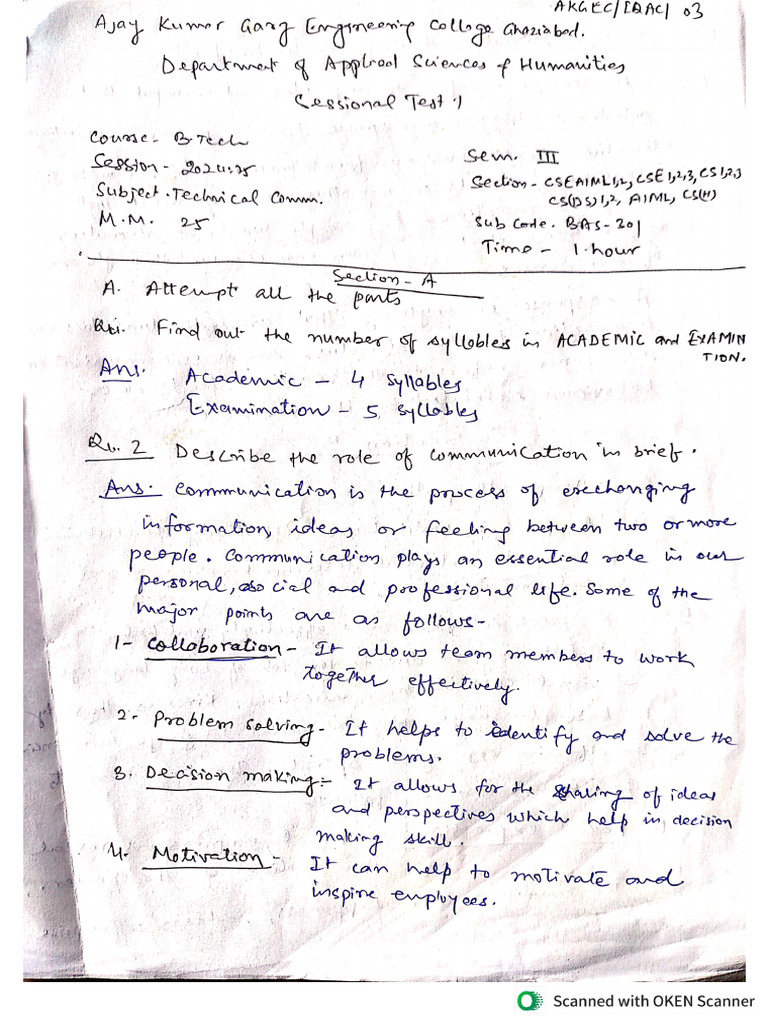 AKGEC/IQAC/ 03
Ajay Kumar Garg Engineering College Ghaziabad.
Department of Applied Sciences & Humanities
Sessional Test 1
Course- B.Tech
Sem. III
Session - 2024-25
Section - CSEAIML1,2, CSE1,2,3, CS1,2,3
Subject. Technical Comm.
CS(DS)1,2, AIML, CS(H)
M.M. 25
Sub Code. BAS-201
Time - 1.hour
Section - A
A. Attempt all the parts
Qu1. Find out the number of syllables in ACADEMIC and EXAMIN
TION.
Ans. Academic - 4 Syllables
Examination - 5 Syllables
Qu. 2 Describe the role of communication in brief.
Ans. Communication is the process of exechanging
information, ideas or feeling between two or more
people. Communication plays an essential role in our
personal, social and professional life. Some of the
major points are as follows-
1- Collaboration - It allows team members to work
together effectively.
2. Problem solving - It helps to identify and solve the
problems.
3. Decision making:- It allows for the sharing of ideas
and perspectives which help in decision
making skill.
4. Motivation:- It can help to motivate and
inspire employees.
Scanned with OKEN Scanner